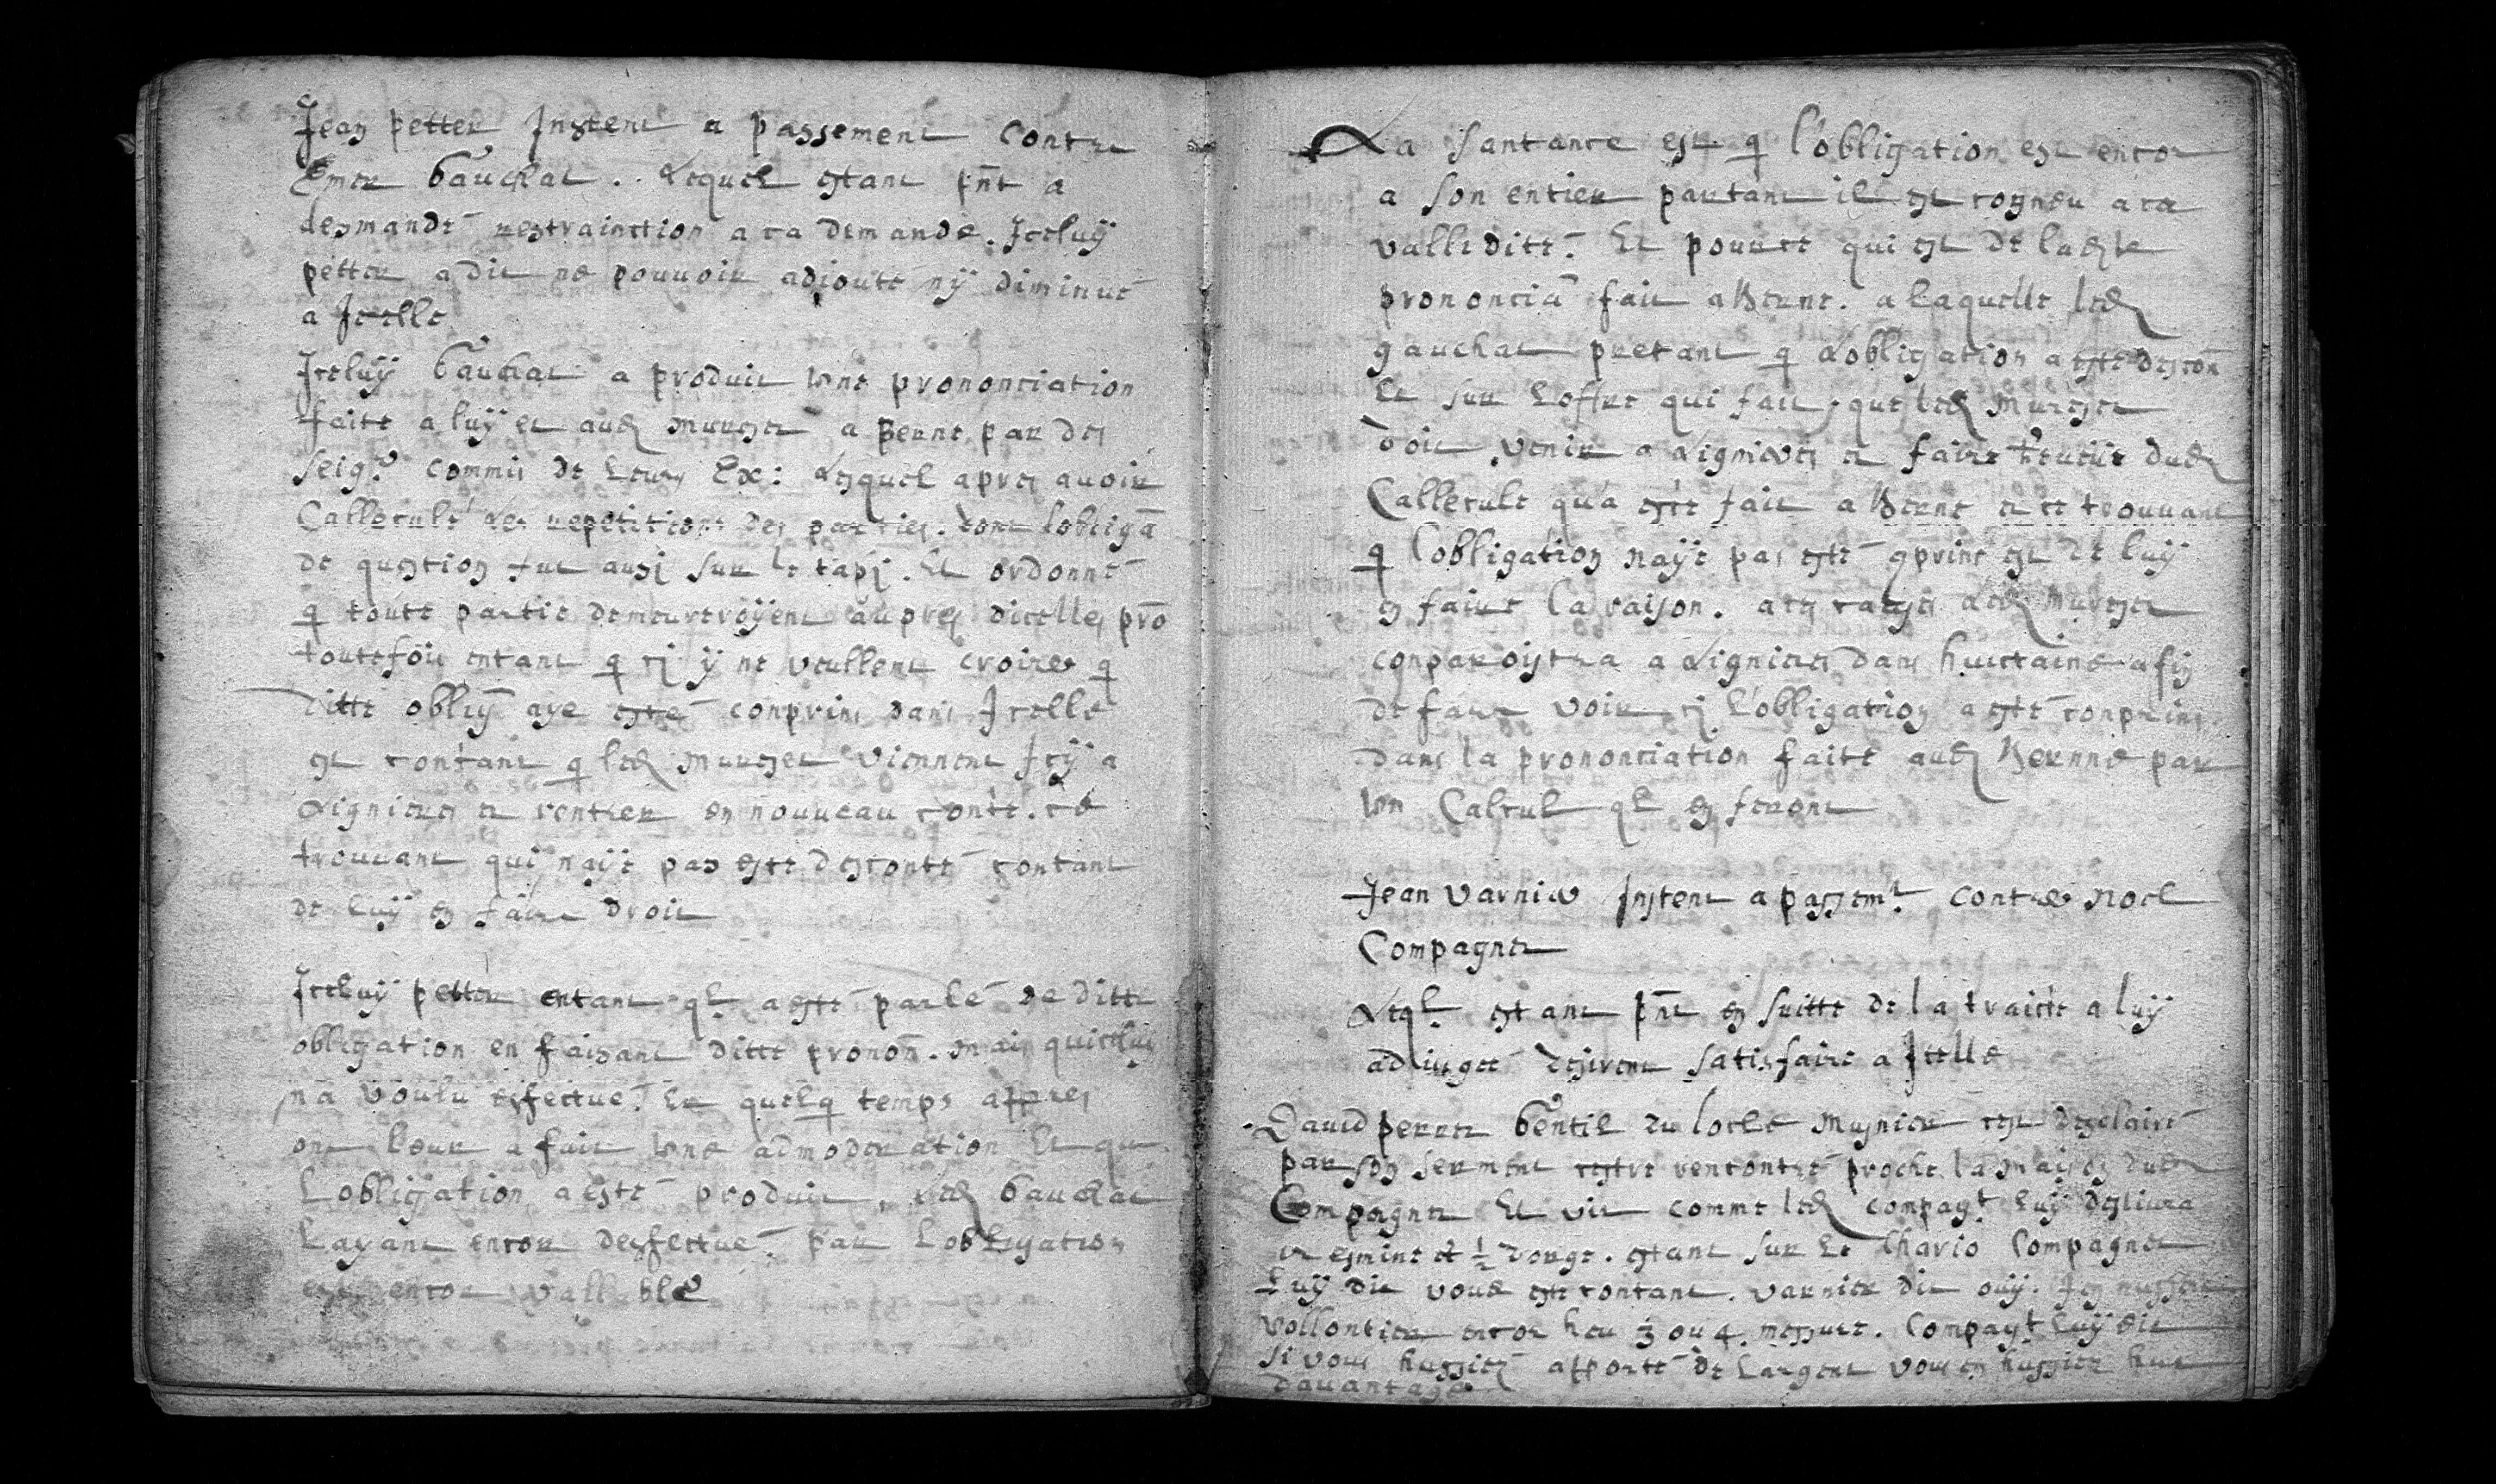 Jean petter Instent a passement Contre
Emer Gauchat .. Lequel estant pñt a
desmandé restrainction a ca demande. Iceluÿ
petter a dit ne pouuoir adiouté nÿ diminué
a Icelle
Iceluÿ Gauchat a produit vne prononciation
faite a luÿ et aud murset a Berne par des
seigr commis de Leurs Ex: Lesquel apres auoir
Callculé Les repetitions des parties. dont lobligã
de question fut ausi sur le tapi. Et ordonné
q toute partie demeureroÿent aupres dicelles pro
toutefois entant q si ÿ ne veullent croire q
ditte obligÿ aye esté conprins dans Icelle
est contant q led murset viennent Icÿ a
Lignieres et rentrer en nouueau conte. ce
trouuant qui naÿe pas esté desconté contant
de luÿ en faire droit
Iceluÿ petter entant ql a esté parlé de ditte
obligation en faisant ditte pronon. mais quicelui
na voulu effectué. Et quelq temps apres
ont leur a fait vne admoderation Et que
Lobligation a esté produit, led Gauchat
Layant encor deffectué. par Lobligation
est encor vallable
La santance est q l'obligation est encor
a son entier partant il est cogneu a ca
valleditté. Et pource qui est de ladte
prononcia fait a Berne. a laquelle led
gauchat pretant q Lobligation a esté descon
Et sur Loffre qui fait que led Murset
doit venir a Lignieres et faire reueüe dud
Callcule qua esté fait a Berne et ce trouuant
q lobligation naÿe pas esté gprins est de luÿ
en faire la raison. a ces causes Led Murset
conparoistra a Lignieres dans huictaine afin
de faire voir si Lobligation a esté conprins
dans la prononciation faite aud Bernne par
vn Calcul ql en feront
Jean varnier Instent a passemt Contre Noel
Compagnet
Leql estant pñt en suitte de la traicte a luÿ
adiugee desirent satisfaire a Icelle
Dauid perret Gentil du locle Musnier est desclairé
par son serment estre rencontré proche la maison dud
Compagnet Et vit comme led compagt luÿ desliura
vn esmine et ½ dorge. estant sur le Chario Compagnet
Luÿ dit vous este contant. varnier dit ouÿ. Jen nusse
vollontier encor heu 3 ou 4 messure. Compagt luÿ dit
si vous hussiez apporté de Largent vous en hussiez heut
dauantage